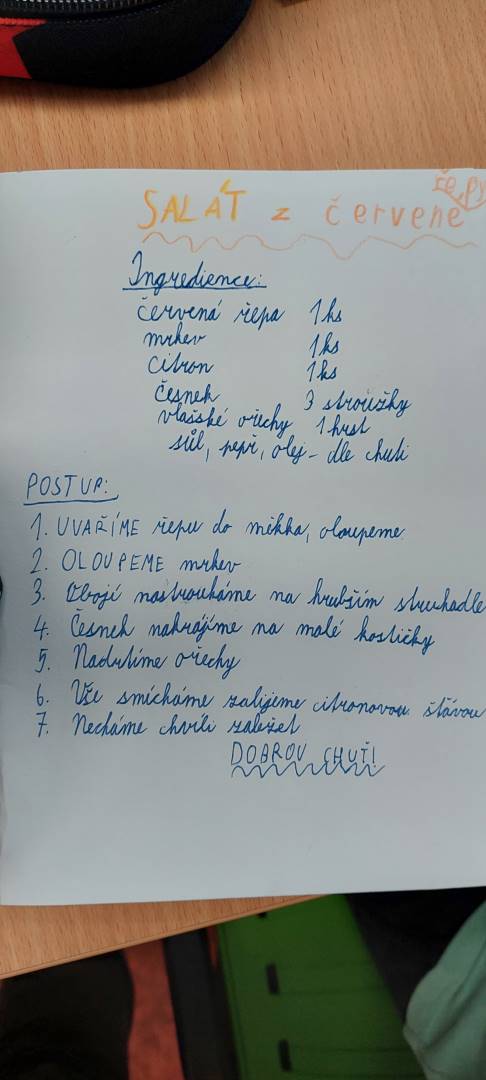 SALÁT z červené řepy
Ingredience:
červená řepa 1ks
mrkev 1ks
citron 1ks
česnek 3 stroužky
vlašské ořechy 1 hrst
sůl, pepř, olej - dle chuti
POSTUP:
1. UVAŘÍME řepu do měkka, oloupeme
2. OLOUPEME mrkev
3. Obojí nastrouháme na hrubším struhadle
4. Česnek nakrájíme na malé kostičky
5. Nadrtíme ořechy
6. Vše smícháme zalijeme citronovou šťávou
7. Necháme chvíli zaležet
DOBROU CHUŤ!